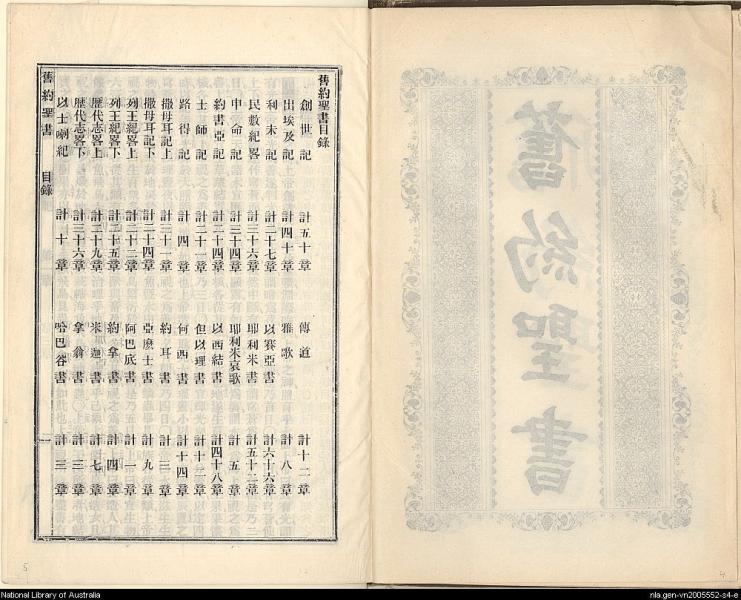 舊約聖書
舊約聖書目錄
創世記 計五十章 傳道 計十二章
出埃及記 計四十章 雅歌 計八章
利未記 計二十七章 以賽亞書 計六十六章
民數紀畧 計三十六章 耶利米書 計五十二章
申命記 計三十四章 耶利米哀歌 計五章
約書亞記 計二十四章 以西結書 計四十八章
士師記 計二十一章 但以理書 計十二章
路得記 計四章 何西書 計十四章
撒母耳記上 計三十一章 約耳書 計三章
撒母耳記下 計二十四章 亞麽士書 計九章
列王紀畧上 計二十二章 阿巴底書 計一章
列王紀畧下 計二十五章 約拿書 計四章
歷代志畧上 計二十九章 米迦書 計七章
歷代志畧下 計三十六章 拿翁書 計三章
以士喇紀 計十章 哈巴谷書 計三章
舊約聖書 目錄 一
5
4
National Library of Australia
nla.gen-vn2005552-s4-e